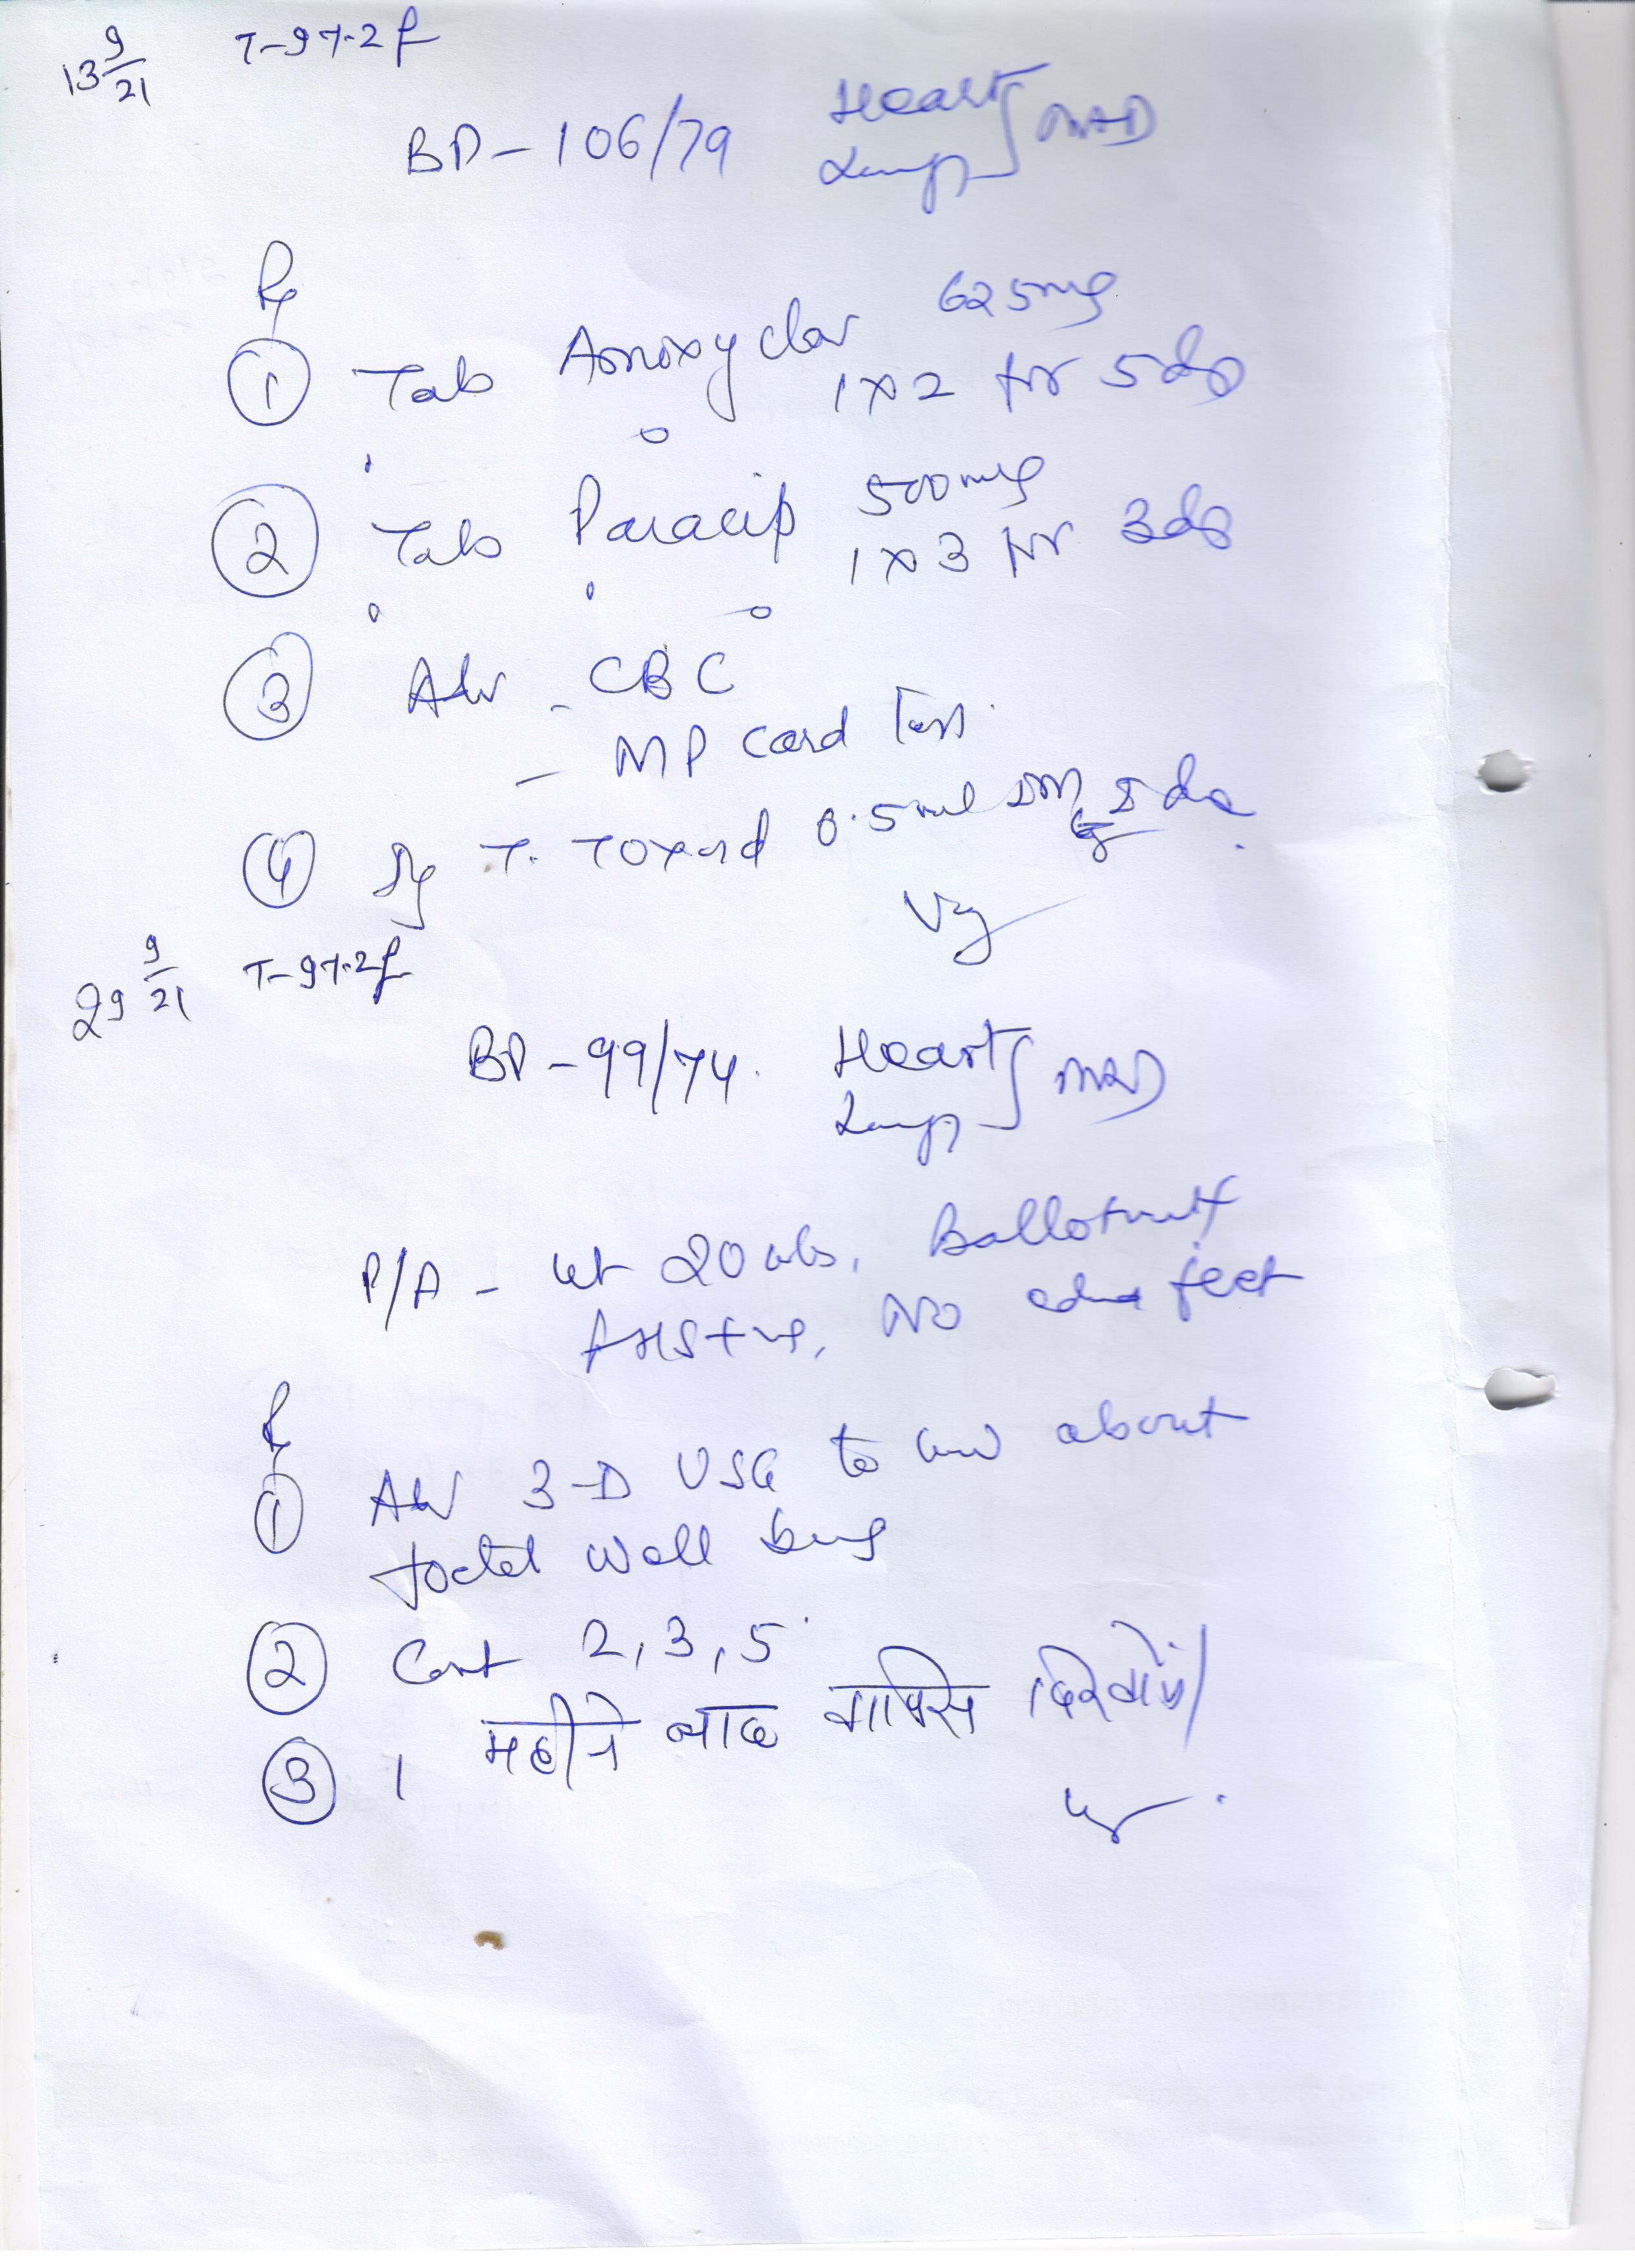 13 9/21 T-97.2f
BP-106/79 Heart Lungs } NAD
Rx
① Tab Amoxyclav 625mg
1x2 for 5ds
② Tab Paracip 500mg
1x3 for 3ds
③ Adv - CBC
- MP card Test
④ Inj T. Toxoid 0.5ml IM
29 9/21 T-97.2f
BP-99/74. Heart Lungs } NAD
P/A - ut 20wks, Ballotment
FHS+ve, No edema feet
Rx
① Adv 3-D USG to know about
foetal well being
② Cont 2,3,5
③ 1 महीने बाद वापिस दिखायें।